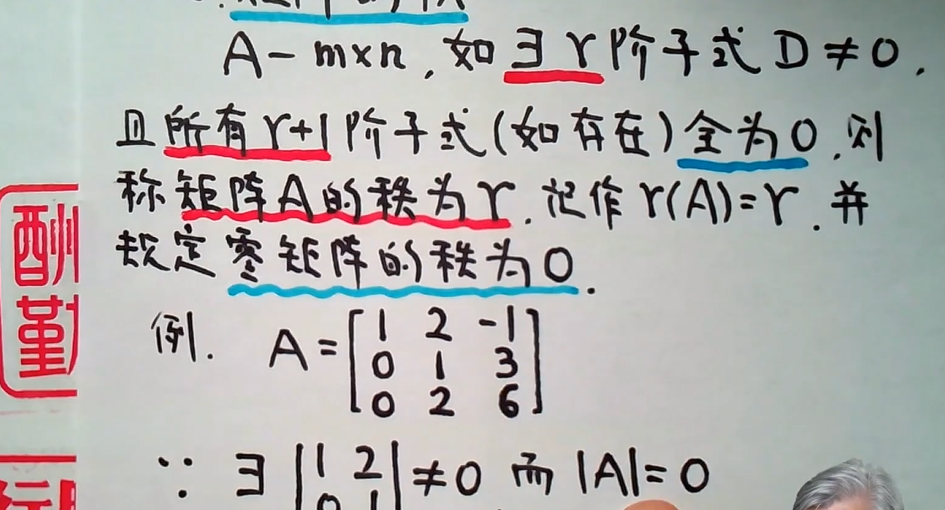 A-m×n,如∃r阶子式D≠0,
且所有r+1阶子式(如存在)全为0,则
称矩阵A的秩为r,记作r(A)=r,并
规定零矩阵的秩为0.
例. A=[1 2 -1
0 1 3
0 2 6]
∵ ∃|1 2
0 1|≠0 而|A|=0
酬
勤